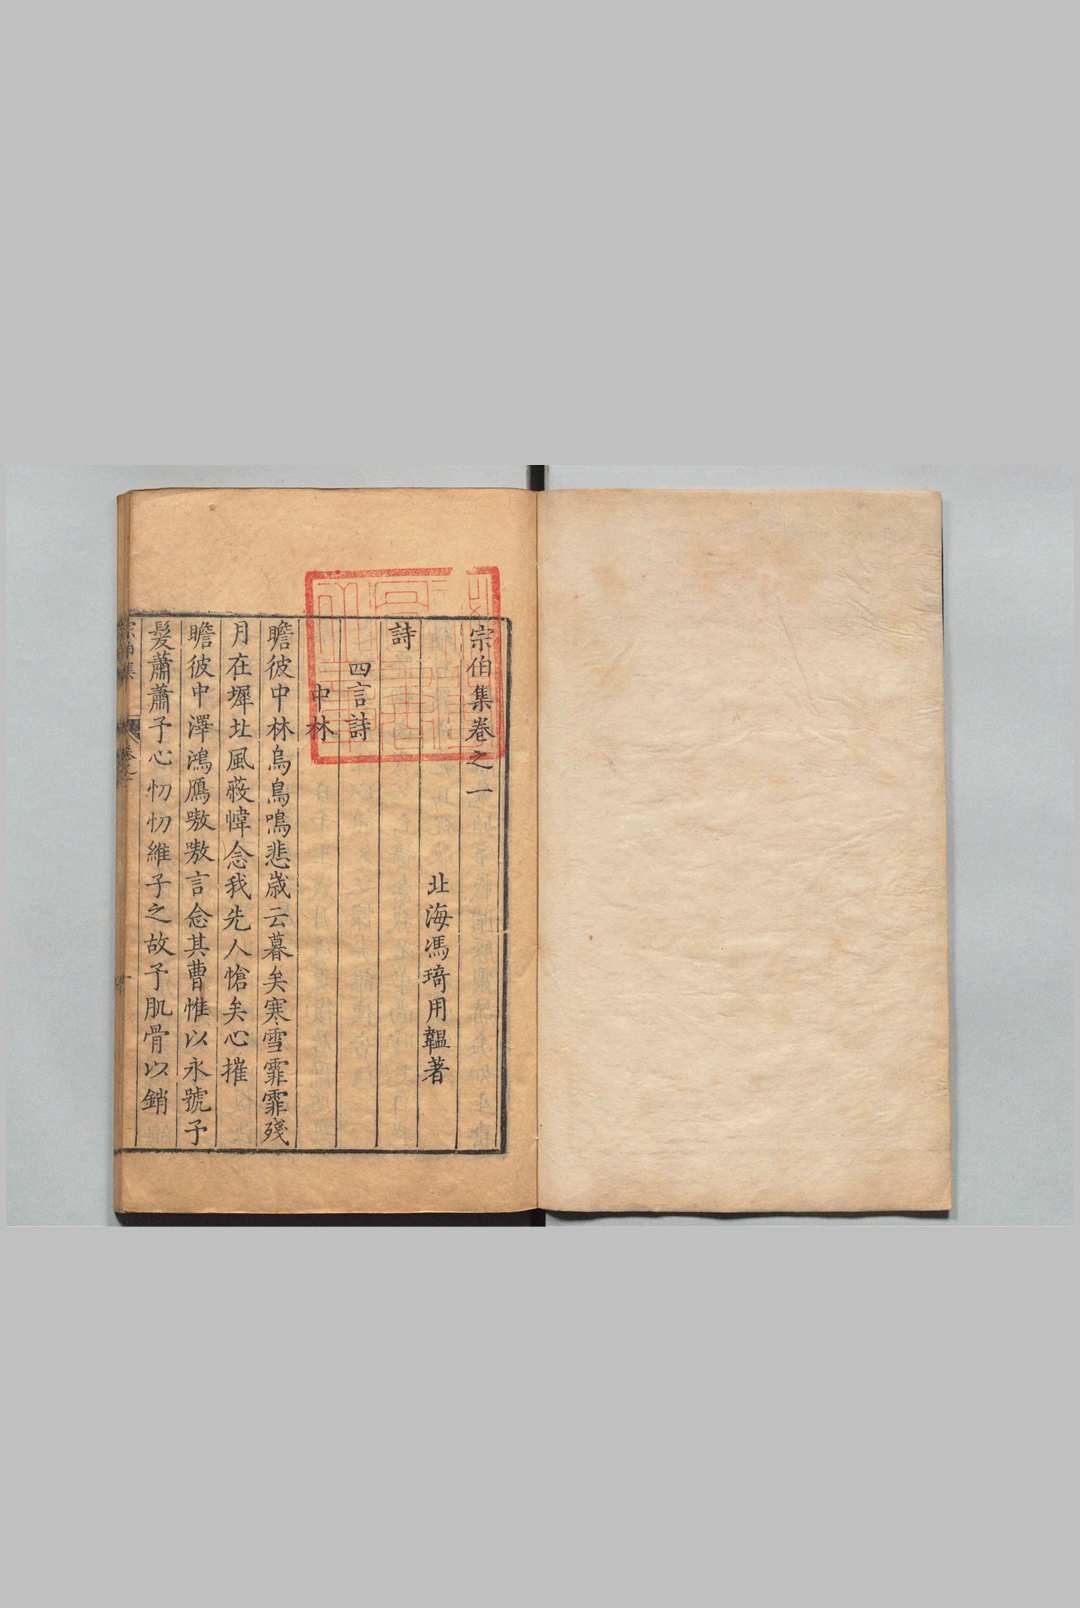 宗伯集卷之一
北海馮琦用韞著
詩
四言詩
中林
瞻彼中林烏鳥鳴悲歲云暮矣寒雪霏霏殘
月在墀北風蔽幃念我先人愴矣心摧
瞻彼中澤鴻鴈嗷嗷言念其曹惟以永號予
髮蕭蕭予心忉忉維子之故予肌骨以銷
宗伯集